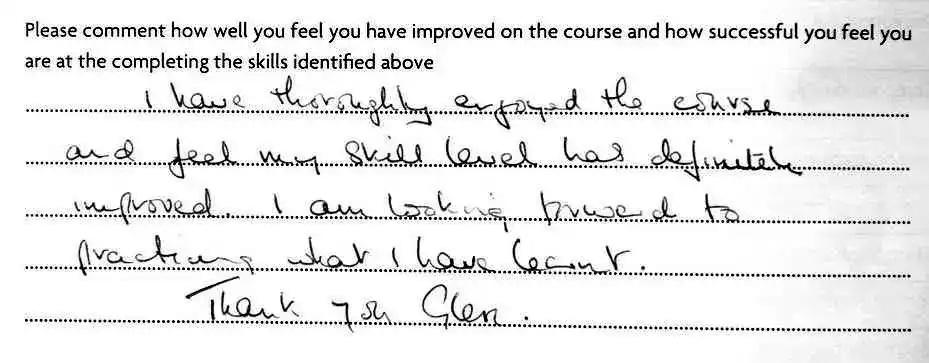 Please comment how well you feel you have improved on the course and how successful you feel you
are at the completing the skills identified above
I have thoroughly enjoyed the course
and feel my skill level has definitely
improved. I am looking forward to
practicing what I have learnt.
Thank you Glen.